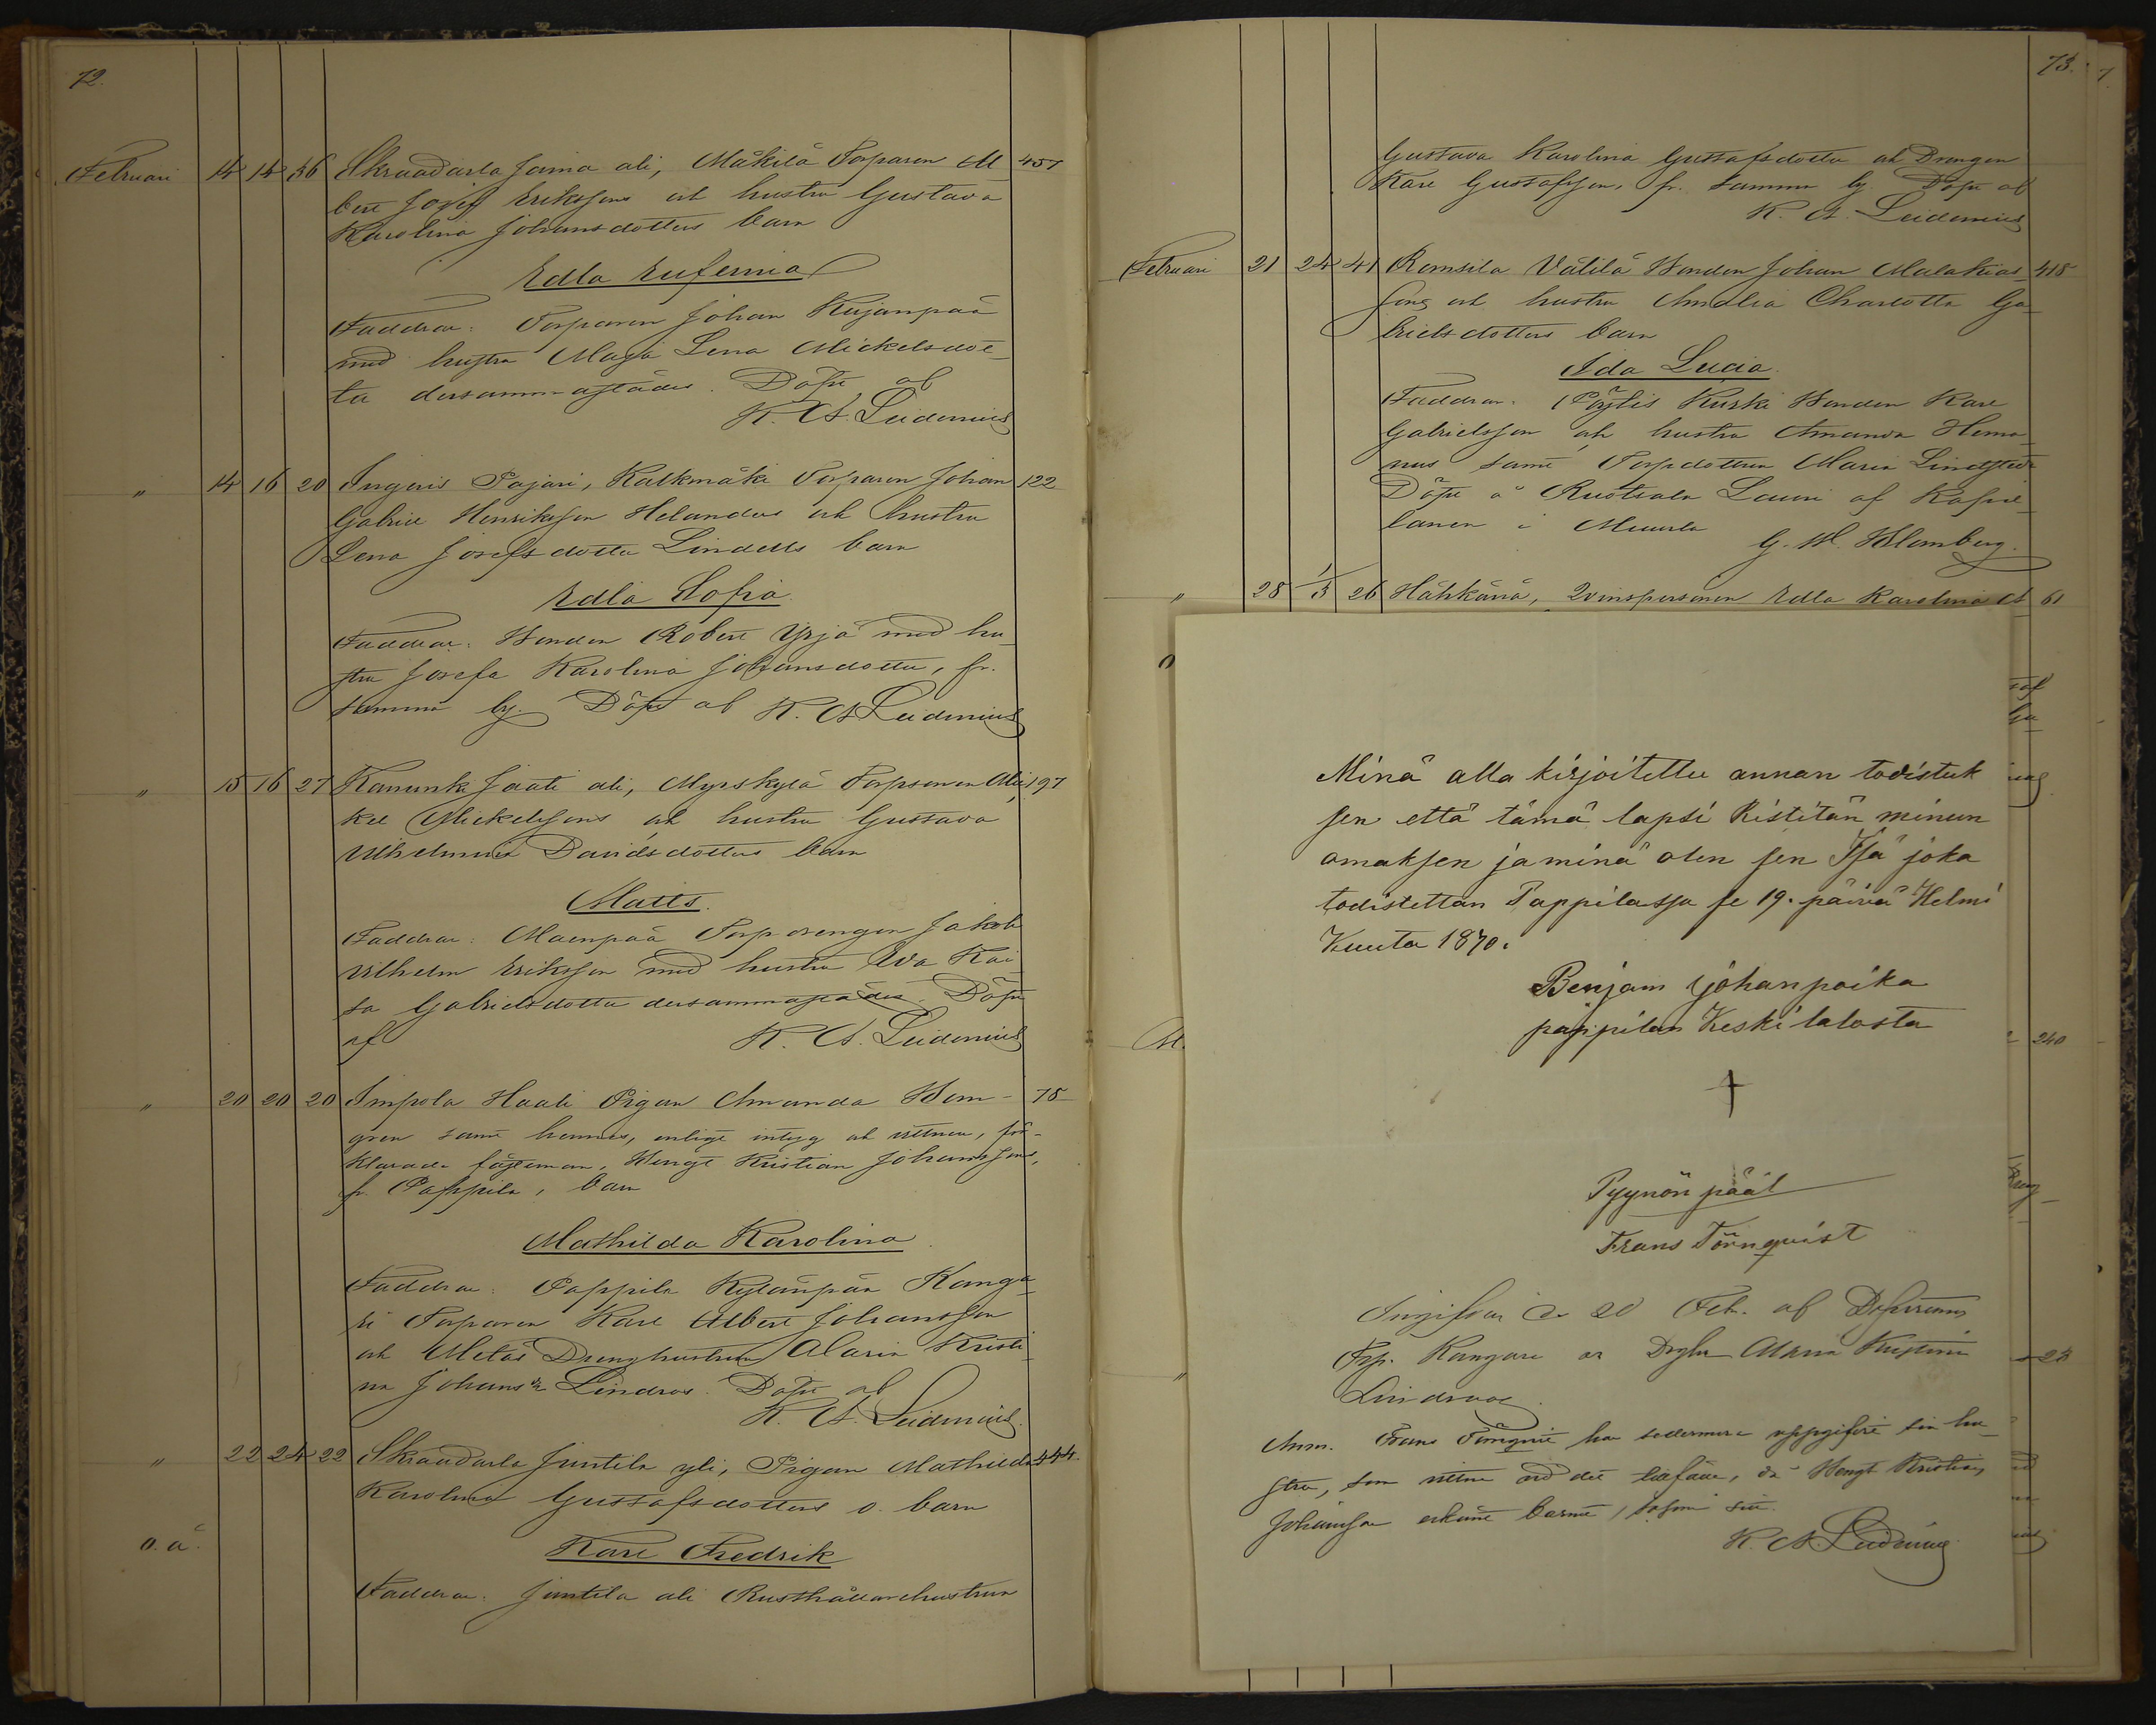 72.
Februari 14 14 36 Skraadarla Jaina ali, Mäkilä Torparen Al_ 451
bert Josef Erikssons och hustru Gustava
Karolina Johansdotters barn
Edla Eufemia
Faddrar: Torparen Johan Kujanpää
med hustru Maja Lena Mickelsdot_
ter dersammastädes. Döpt af
K. A. Leidenius
" 14 16 20 Ingeris Pajari, Kalkmäki Torparen Johan 122
Gabriel Henriksson Helanders och hustru
Lena Josefsdotter Lindells barn
Edla Sofia
Faddrar: Bonden Robert Yrjä med hu_
stru Josefa Karolina Johansdotter, fr.
samma by. Döpt af K. A. Leidenius
" 15 16 27 Kanunki Jaati ali, Myrskylä Torpsonen Mic_ 197
kel Mickelssons och hustru Gustava
Vilhelmina Davidsdotters barn
Matts.
Faddrar: Maenpää Torpdrengen Jakob
Vilhelm Eriksson med hustru Eva Kai_
sa Gabrielsdotter dersammastädes. Döpt
af K. A. Leidenius
" 20 20 20 Impola Haali Pigan Amanda Hem- 78
gren samt hennes, enligt intyg och vittnen, för-
klarade fästeman, Bengt Kristian Johanssons,
fr. Pappila, barn
Mathilda Karolina
Faddrar: Pappila Kylänpää Kanga_
ri Torparen Karl Albert Johansson
och Drenghustrun Maria Kristi_
na Johansdr Lindros. Döpt af
K. A. Leidenius.
" 22 24 22 Skraadarla Juntila yli, Pigan Mathilda 444.
Karolina Gustafsdotters o. barn
o. ä. Karl Fredrik
Faddrar: Juntila ali Rusthållarehustrun
73.
Gustava Karolina Gustafsdotter och Drengen
Karl Gustafsson, fr. samma by. Döpt af
K. A. Leidenius
Februari 21 24 41 Romsila Välilä Bonden Johan Malakias_ 415
sons och hustru Amalia Charlotta Ga_
brielsdotters barn
Ida Lucia.
Faddrar: Pöytis Kurki Bonden Karl
Gabrielsson och hustru Amanda
samt Torpdottren Maria Lindstedt
Döpt å Ruotsala Lauri af Kapel_
lanen i
G. W. Blomberg.
" 28 1/3 26 Hähkänä, Qvinspersonen Edla Karolina A 61
Minä alla kirjoitettu annan todistuk
sen että tämä lapsi Ristitän minun
omaksen ja minä olen sen Isä joka
todistettan Pappilassa se 19. päivä Helmi
Kuuta 1870.
Benjam johanpoika
pappilan Keskitalosta
Pyynön pääl
Frans Törnqvist
Ingifven d. 20 Feb. af
Trp. Kangari o. Maria Kristina
Lindroos
Anm. Frans Törnqvist har sedermera uppgifvit sin hu_
stru, som vittne vid det tillfälle, då Bengt Kristian
Johansson erkänt barnet, såsom sitt.
K. A. Leidenius
240
24